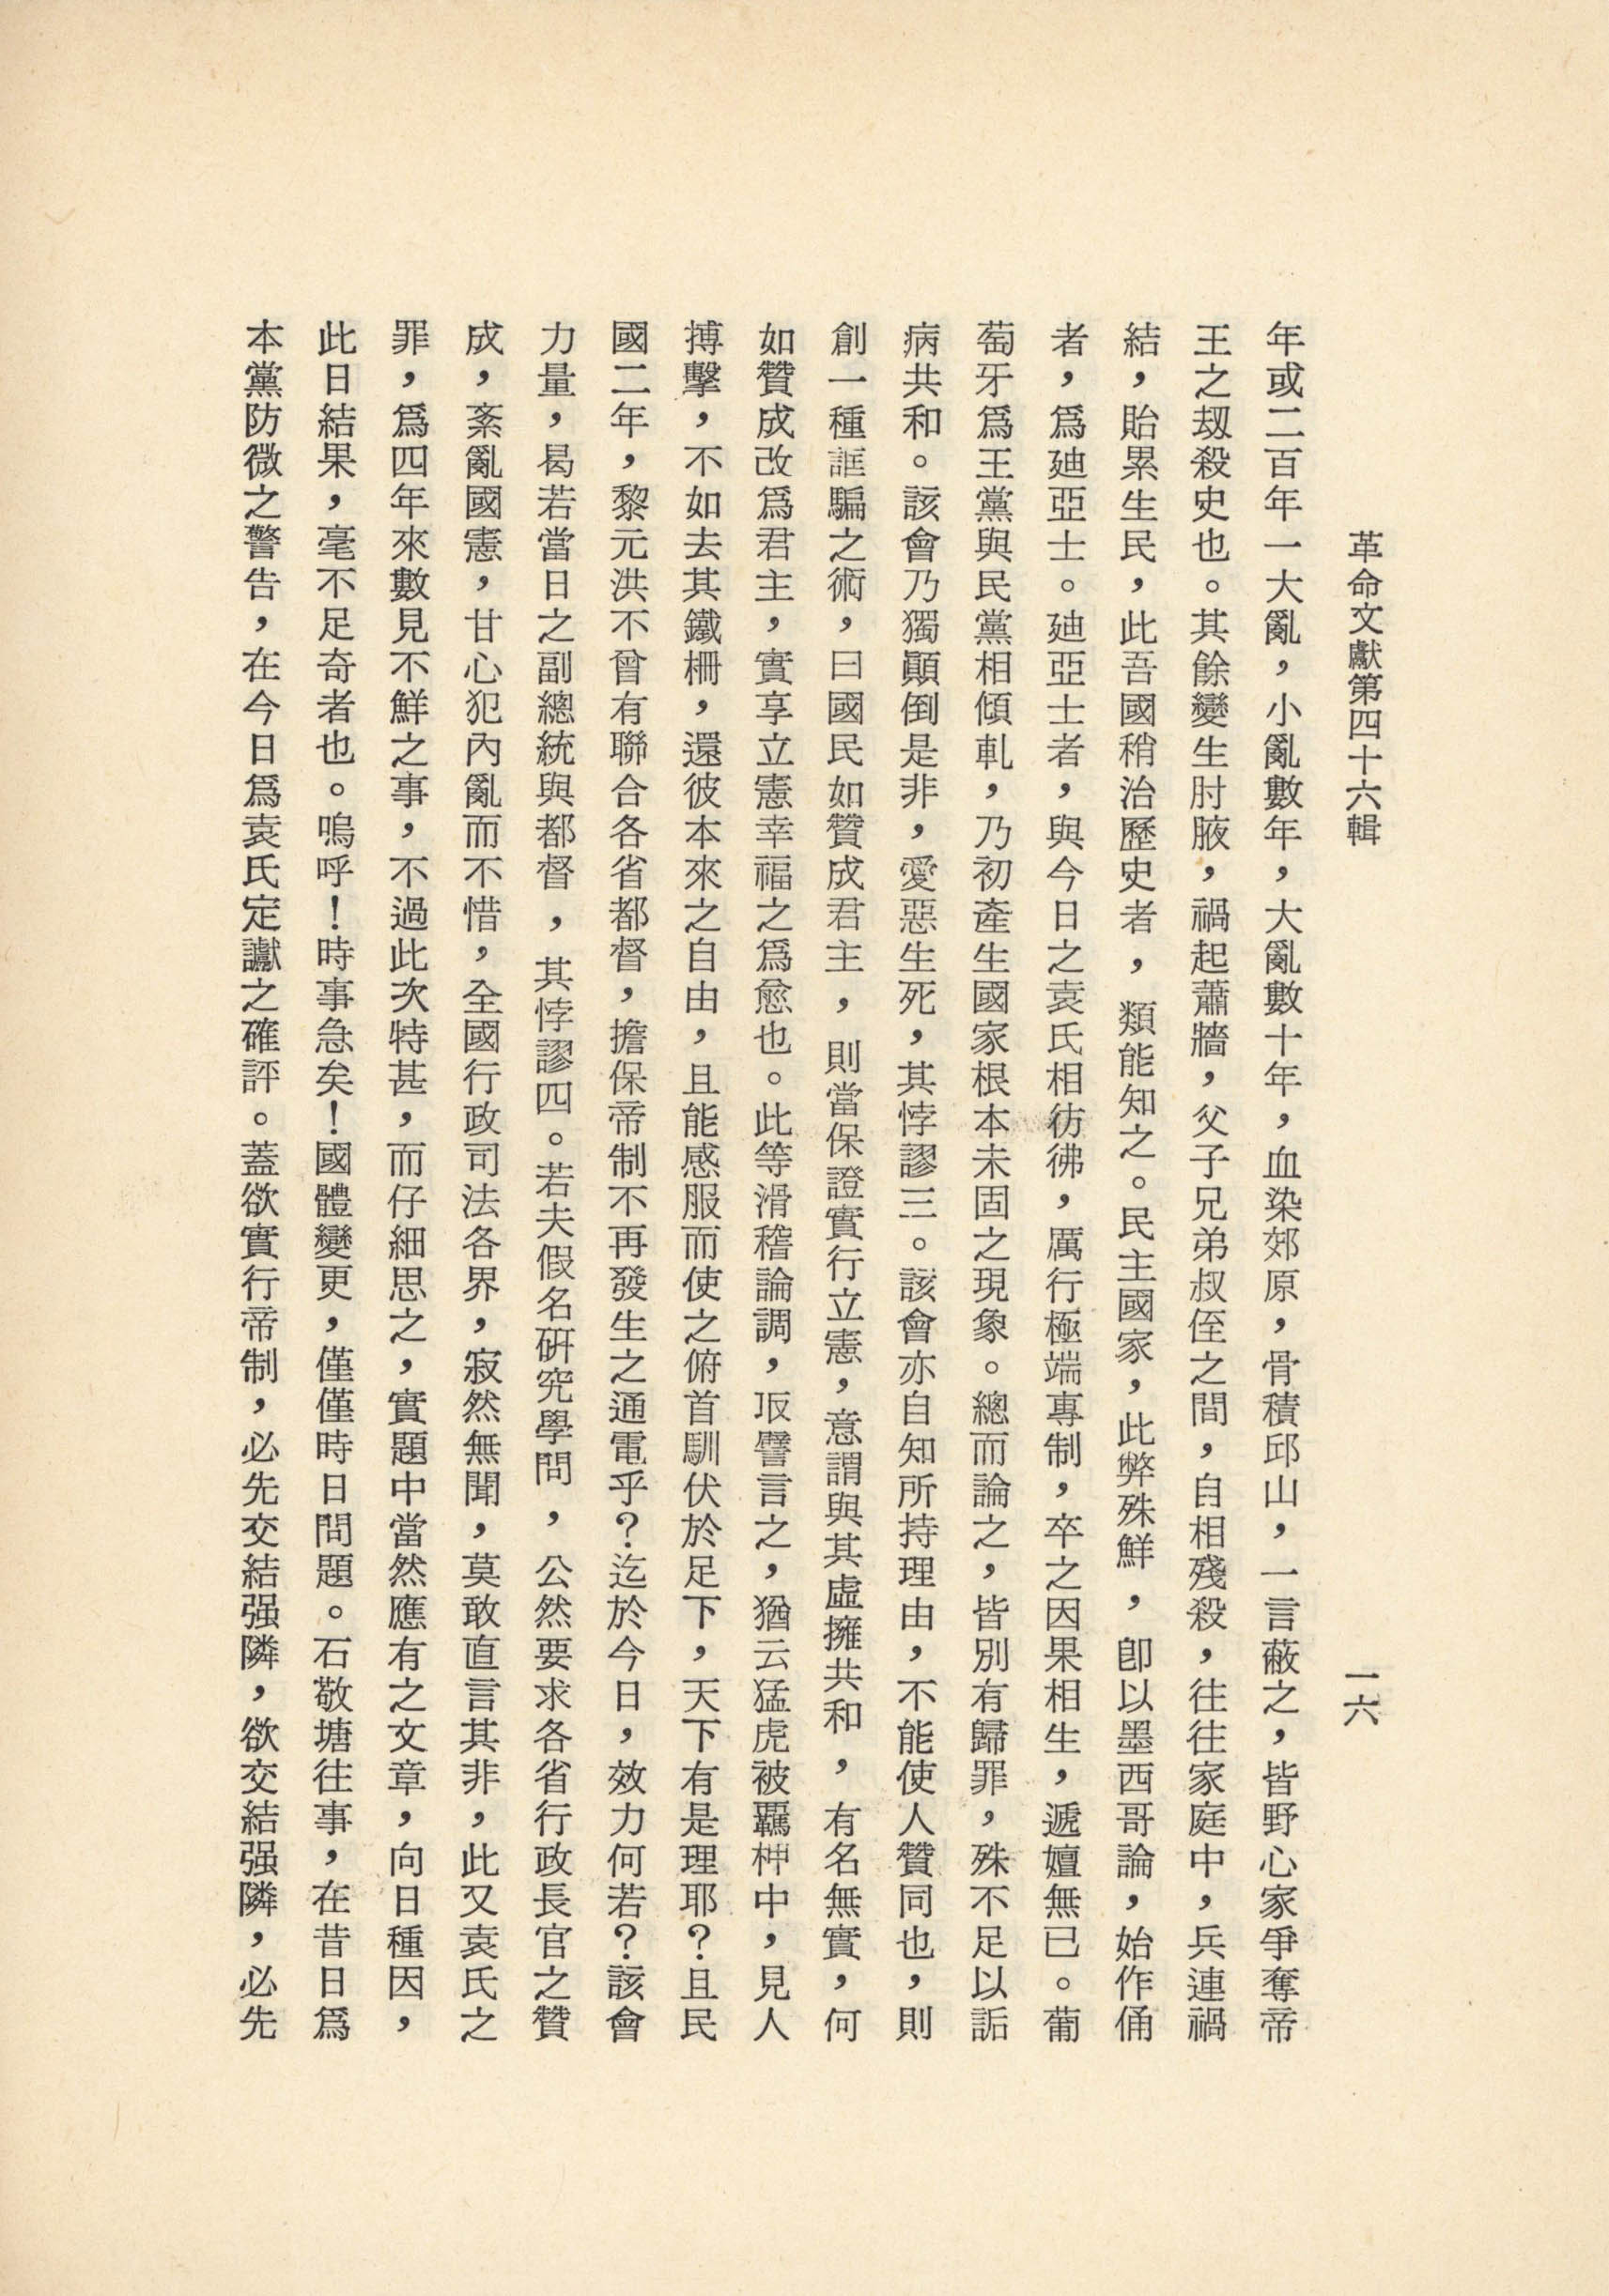 革命文獻第四十六輯
一六
年或二百年一大亂，小亂數年，大亂數十年，血染郊原，骨積邱山，一言蔽之，皆野心家爭奪帝
王之刼殺史也。其餘變生肘腋，禍起蕭牆，父子兄弟叔侄之間，自相殘殺，往往家庭中，兵連禍
結，貽累生民，此吾國稍治歷史者，類能知之。民主國家，此弊殊鮮，卽以墨西哥論，始作俑
者，爲廸亞士。廸亞士者，與今日之袁氏相彷彿，厲行極端專制，卒之因果相生，遞嬗無已。葡
萄牙爲王黨與民黨相傾軋，乃初產生國家根本未固之現象。總而論之，皆別有歸罪，殊不足以詬
病共和。該會乃獨顚倒是非，愛惡生死，其悖謬三。該會亦自知所持理由，不能使人贊同也，則
創一種誆騙之術，曰國民如贊成君主，則當保證實行立憲，意謂與其虛擁共和，有名無實，何
如贊成改爲君主，實享立憲幸福之爲愈也。此等滑稽論調，取譬言之，猶云猛虎被羈柙中，見人
搏擊，不如去其鐵柵，還彼本來之自由，且能感服而使之俯首馴伏於足下，天下有是理耶？且民
國二年，黎元洪不曾有聯合各省都督，擔保帝制不再發生之通電乎？迄於今日，效力何若？該會
力量，曷若當日之副總統與都督，其悖謬四。若夫假名研究學問，公然要求各省行政長官之贊
成，紊亂國憲，甘心犯內亂而不惜，全國行政司法各界，寂然無聞，莫敢直言其非，此又袁氏之
罪，爲四年來數見不鮮之事，不過此次特甚，而仔細思之，實題中當然應有之文章，向日種因，
此日結果，毫不足奇者也。嗚呼！時事急矣！國體變更，僅僅時日問題。石敬塘往事，在昔日爲
本黨防微之警告，在今日爲袁氏定讞之確評。蓋欲實行帝制，必先交結强隣，欲交結强隣，必先